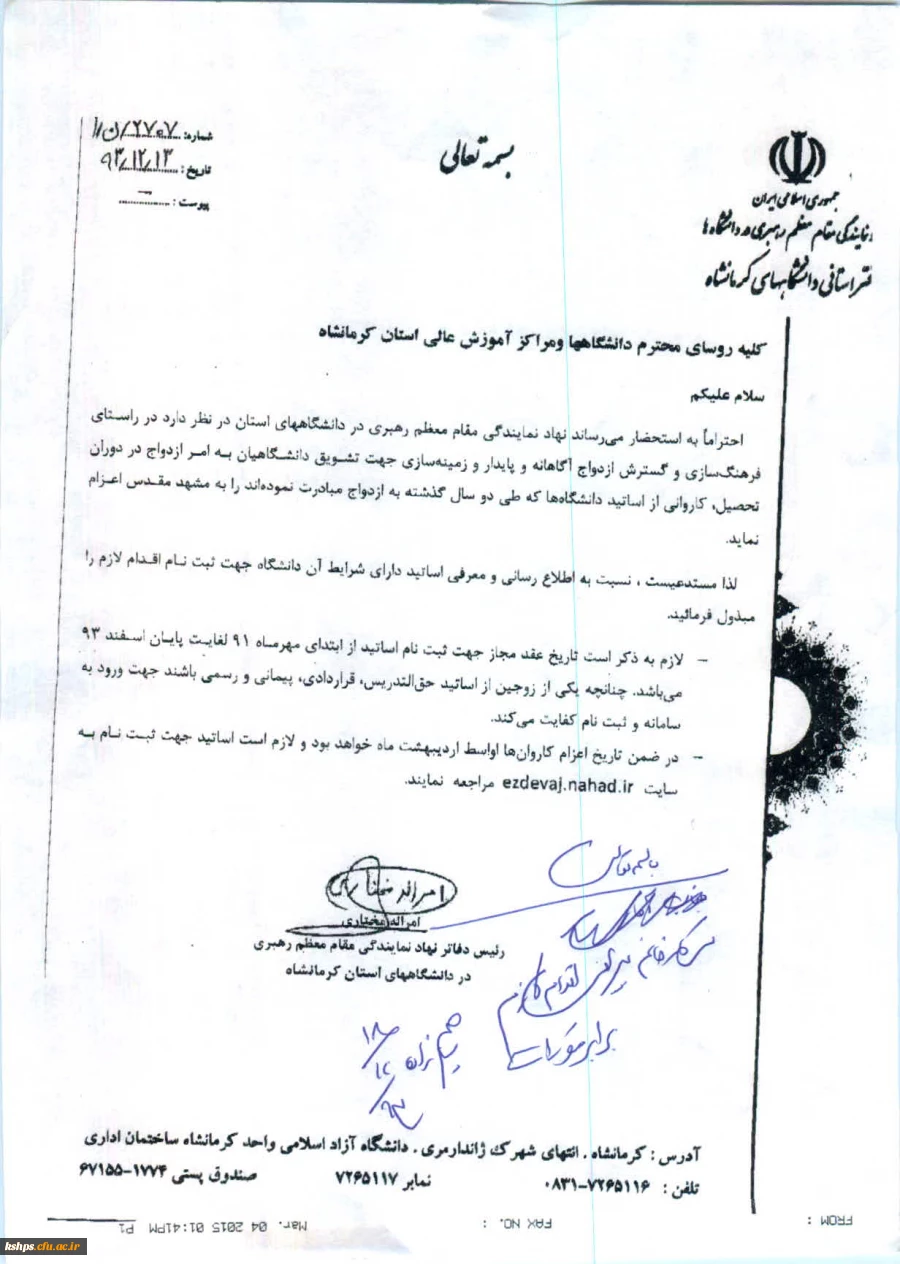 بسمه تعالی
شماره: ۲۷۰۷/ن/ا
تاریخ: ۹۳/۱۲/۱۳
پیوست: —
جمهوری اسلامی ایران
نمایندگی مقام معظم رهبری در دانشگاه ها
دفتر استانی دانشگاههای کرمانشاه
کلیه روسای محترم دانشگاهها ومراکز آموزش عالی استان کرمانشاه
سلام علیکم
احتراماً به استحضار می‌رساند نهاد نمایندگی مقام معظم رهبری در دانشگاههای استان در نظر دارد در راستای
فرهنگ‌سازی و گسترش ازدواج آگاهانه و پایدار و زمینه‌سازی جهت تشویق دانشگاهیان به امر ازدواج در دوران
تحصیل، کاروانی از اساتید دانشگاه‌ها که طی دو سال گذشته به ازدواج مبادرت نموده‌اند را به مشهد مقدس اعزام
نماید.
لذا مستدعیست ، نسبت به اطلاع رسانی و معرفی اساتید دارای شرایط آن دانشگاه جهت ثبت نام اقدام لازم را
مبذول فرمائید.
– لازم به ذکر است تاریخ عقد مجاز جهت ثبت نام اساتید از ابتدای مهرماه ۹۱ لغایت پایان اسفند ۹۳
می‌باشد. چنانچه یکی از زوجین از اساتید حق‌التدریس، قراردادی، پیمانی و رسمی باشند جهت ورود به
سامانه و ثبت نام کفایت می‌کند.
– در ضمن تاریخ اعزام کاروان‌ها اواسط اردیبهشت ماه خواهد بود و لازم است اساتید جهت ثبت نام به
سایت ezdevaj.nahad.ir مراجعه نمایند.
امراله مختاری
امراله مختاری
رئیس دفاتر نهاد نمایندگی مقام معظم رهبری
در دانشگاههای استان کرمانشاه
باسمه تعالی
سرکار خانم اقدام لازم
برابر مقررات
۹۳/۱۲/۱۸
آدرس : کرمانشاه . انتهای شهرک ژاندارمری . دانشگاه آزاد اسلامی واحد کرمانشاه ساختمان اداری
تلفن : ۷۲۶۵۱۱۶-۰۸۳۱ نمابر ۷۲۶۵۱۱۷ صندوق پستی ۱۷۷۴-۶۷۱۵۵
FROM : FAX NO. : Mar. 04 2015 01:41PM P1
kshps.cfu.ac.ir